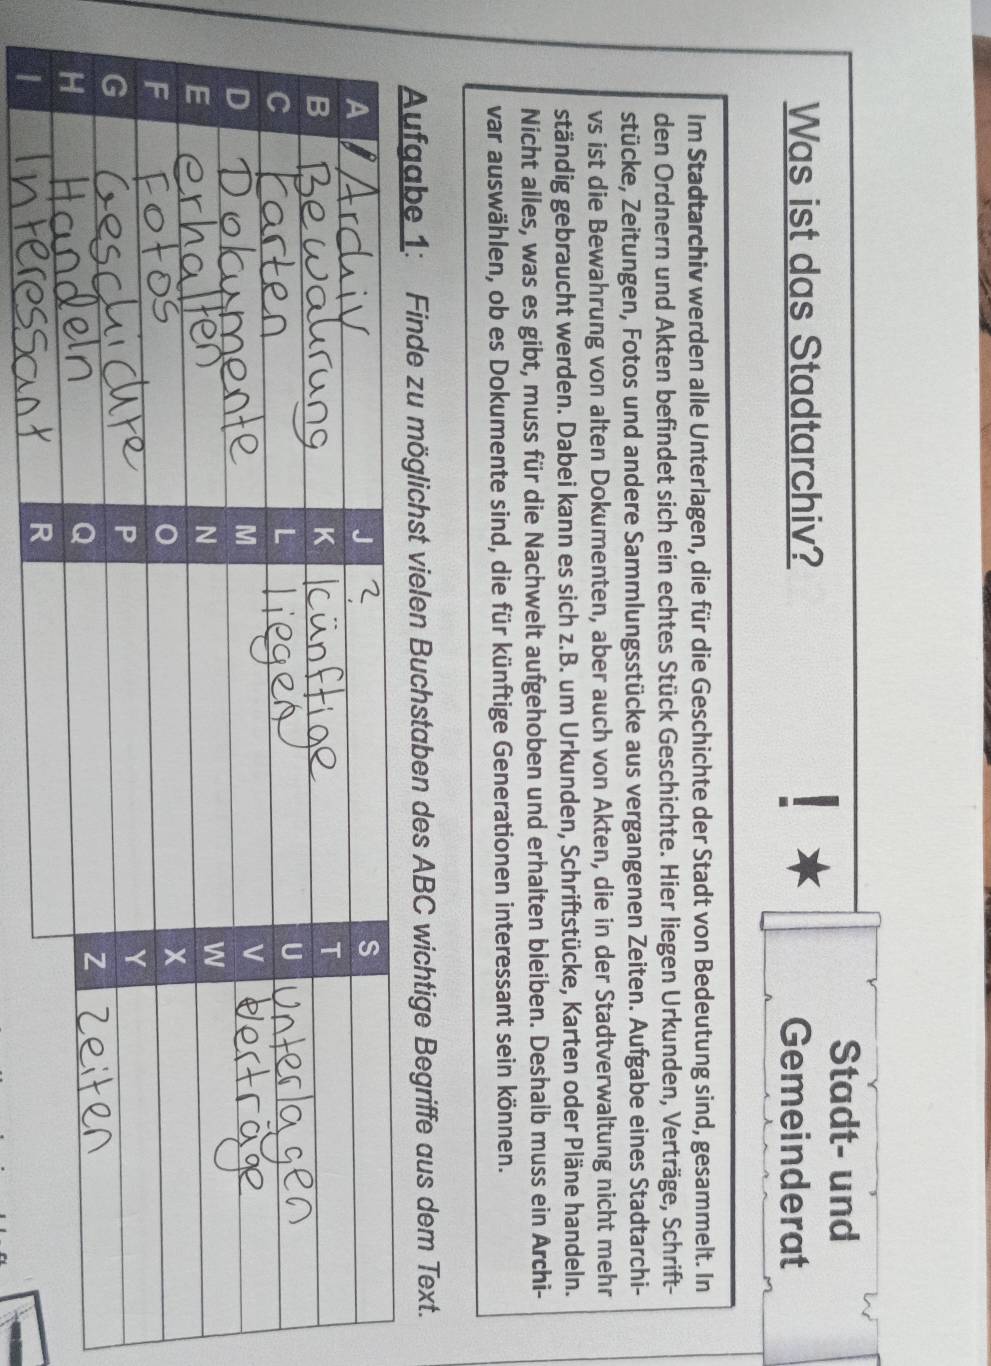 Was ist das Stadtarchiv?
!
Stadt- und
Gemeinderat
Im Stadtarchiv werden alle Unterlagen, die für die Geschichte der Stadt von Bedeutung sind, gesammelt. In
den Ordnern und Akten befindet sich ein echtes Stück Geschichte. Hier liegen Urkunden, Verträge, Schrift-
stücke, Zeitungen, Fotos und andere Sammlungsstücke aus vergangenen Zeiten. Aufgabe eines Stadtarchi-
vs ist die Bewahrung von alten Dokumenten, aber auch von Akten, die in der Stadtverwaltung nicht mehr
ständig gebraucht werden. Dabei kann es sich z.B. um Urkunden, Schriftstücke, Karten oder Pläne handeln.
Nicht alles, was es gibt, muss für die Nachwelt aufgehoben und erhalten bleiben. Deshalb muss ein Archi-
var auswählen, ob es Dokumente sind, die für künftige Generationen interessant sein können.
Aufgabe 1: Finde zu möglichst vielen Buchstaben des ABC wichtige Begriffe aus dem Text.
A Archiv
B Bewahrung
C Karten
D Dokumente
E erhalten
F Fotos
G Geschichte
H Handeln
I Interessant
J ?
K künftige
L liegen
M
N
O
P
Q
R
S
T
U Unterlagen
V Verträge
W
X
Y
Z Zeiten